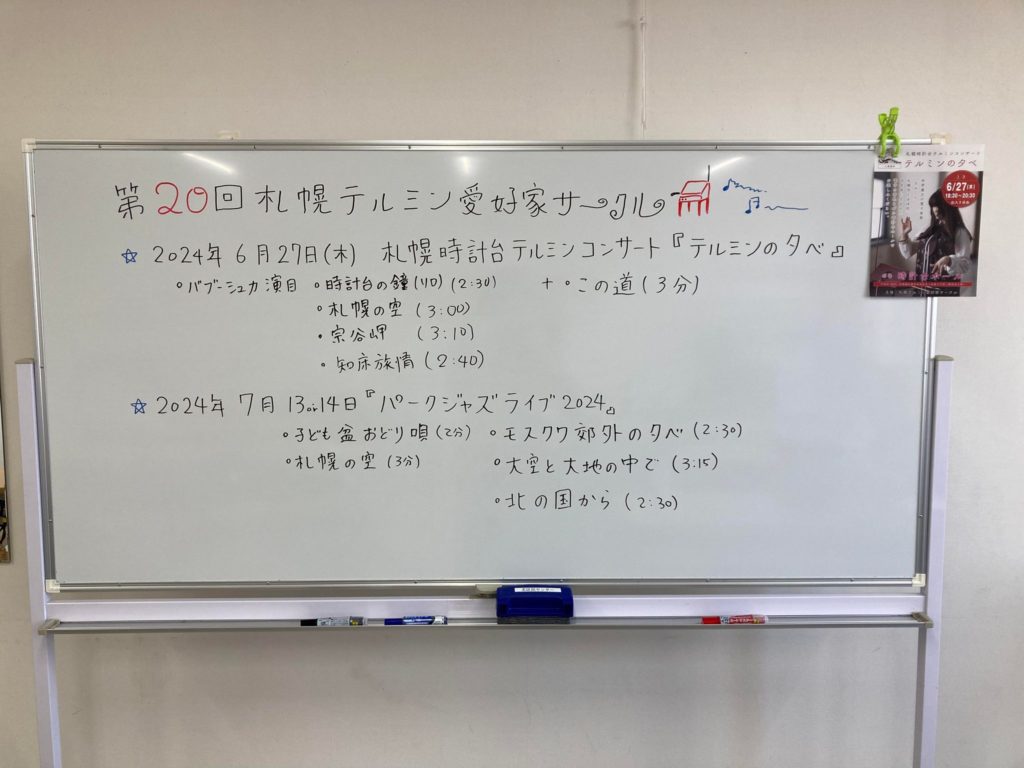 第20回 札幌テルミン愛好家サークル
☆ 2024年 6月27日(木) 札幌時計台テルミンコンサート『テルミンの夕べ』
・バブーシュカ演目 ・時計台の鐘(ソロ)(2:30) + ・この道(3分)
・札幌の空 (3:00)
・宗谷岬 (3:10)
・知床旅情 (2:40)
☆ 2024年 7月 13or14日『パークジャズライブ2024』
・子ども盆おどり唄(2分) ・モスクワ郊外の夕べ(2:30)
・札幌の空 (3分) ・大空と大地の中で (3:15)
・北の国から (2:30)
札幌時計台テルミンコンサート
テルミンの夕べ
6/27(木)
時計台ホール